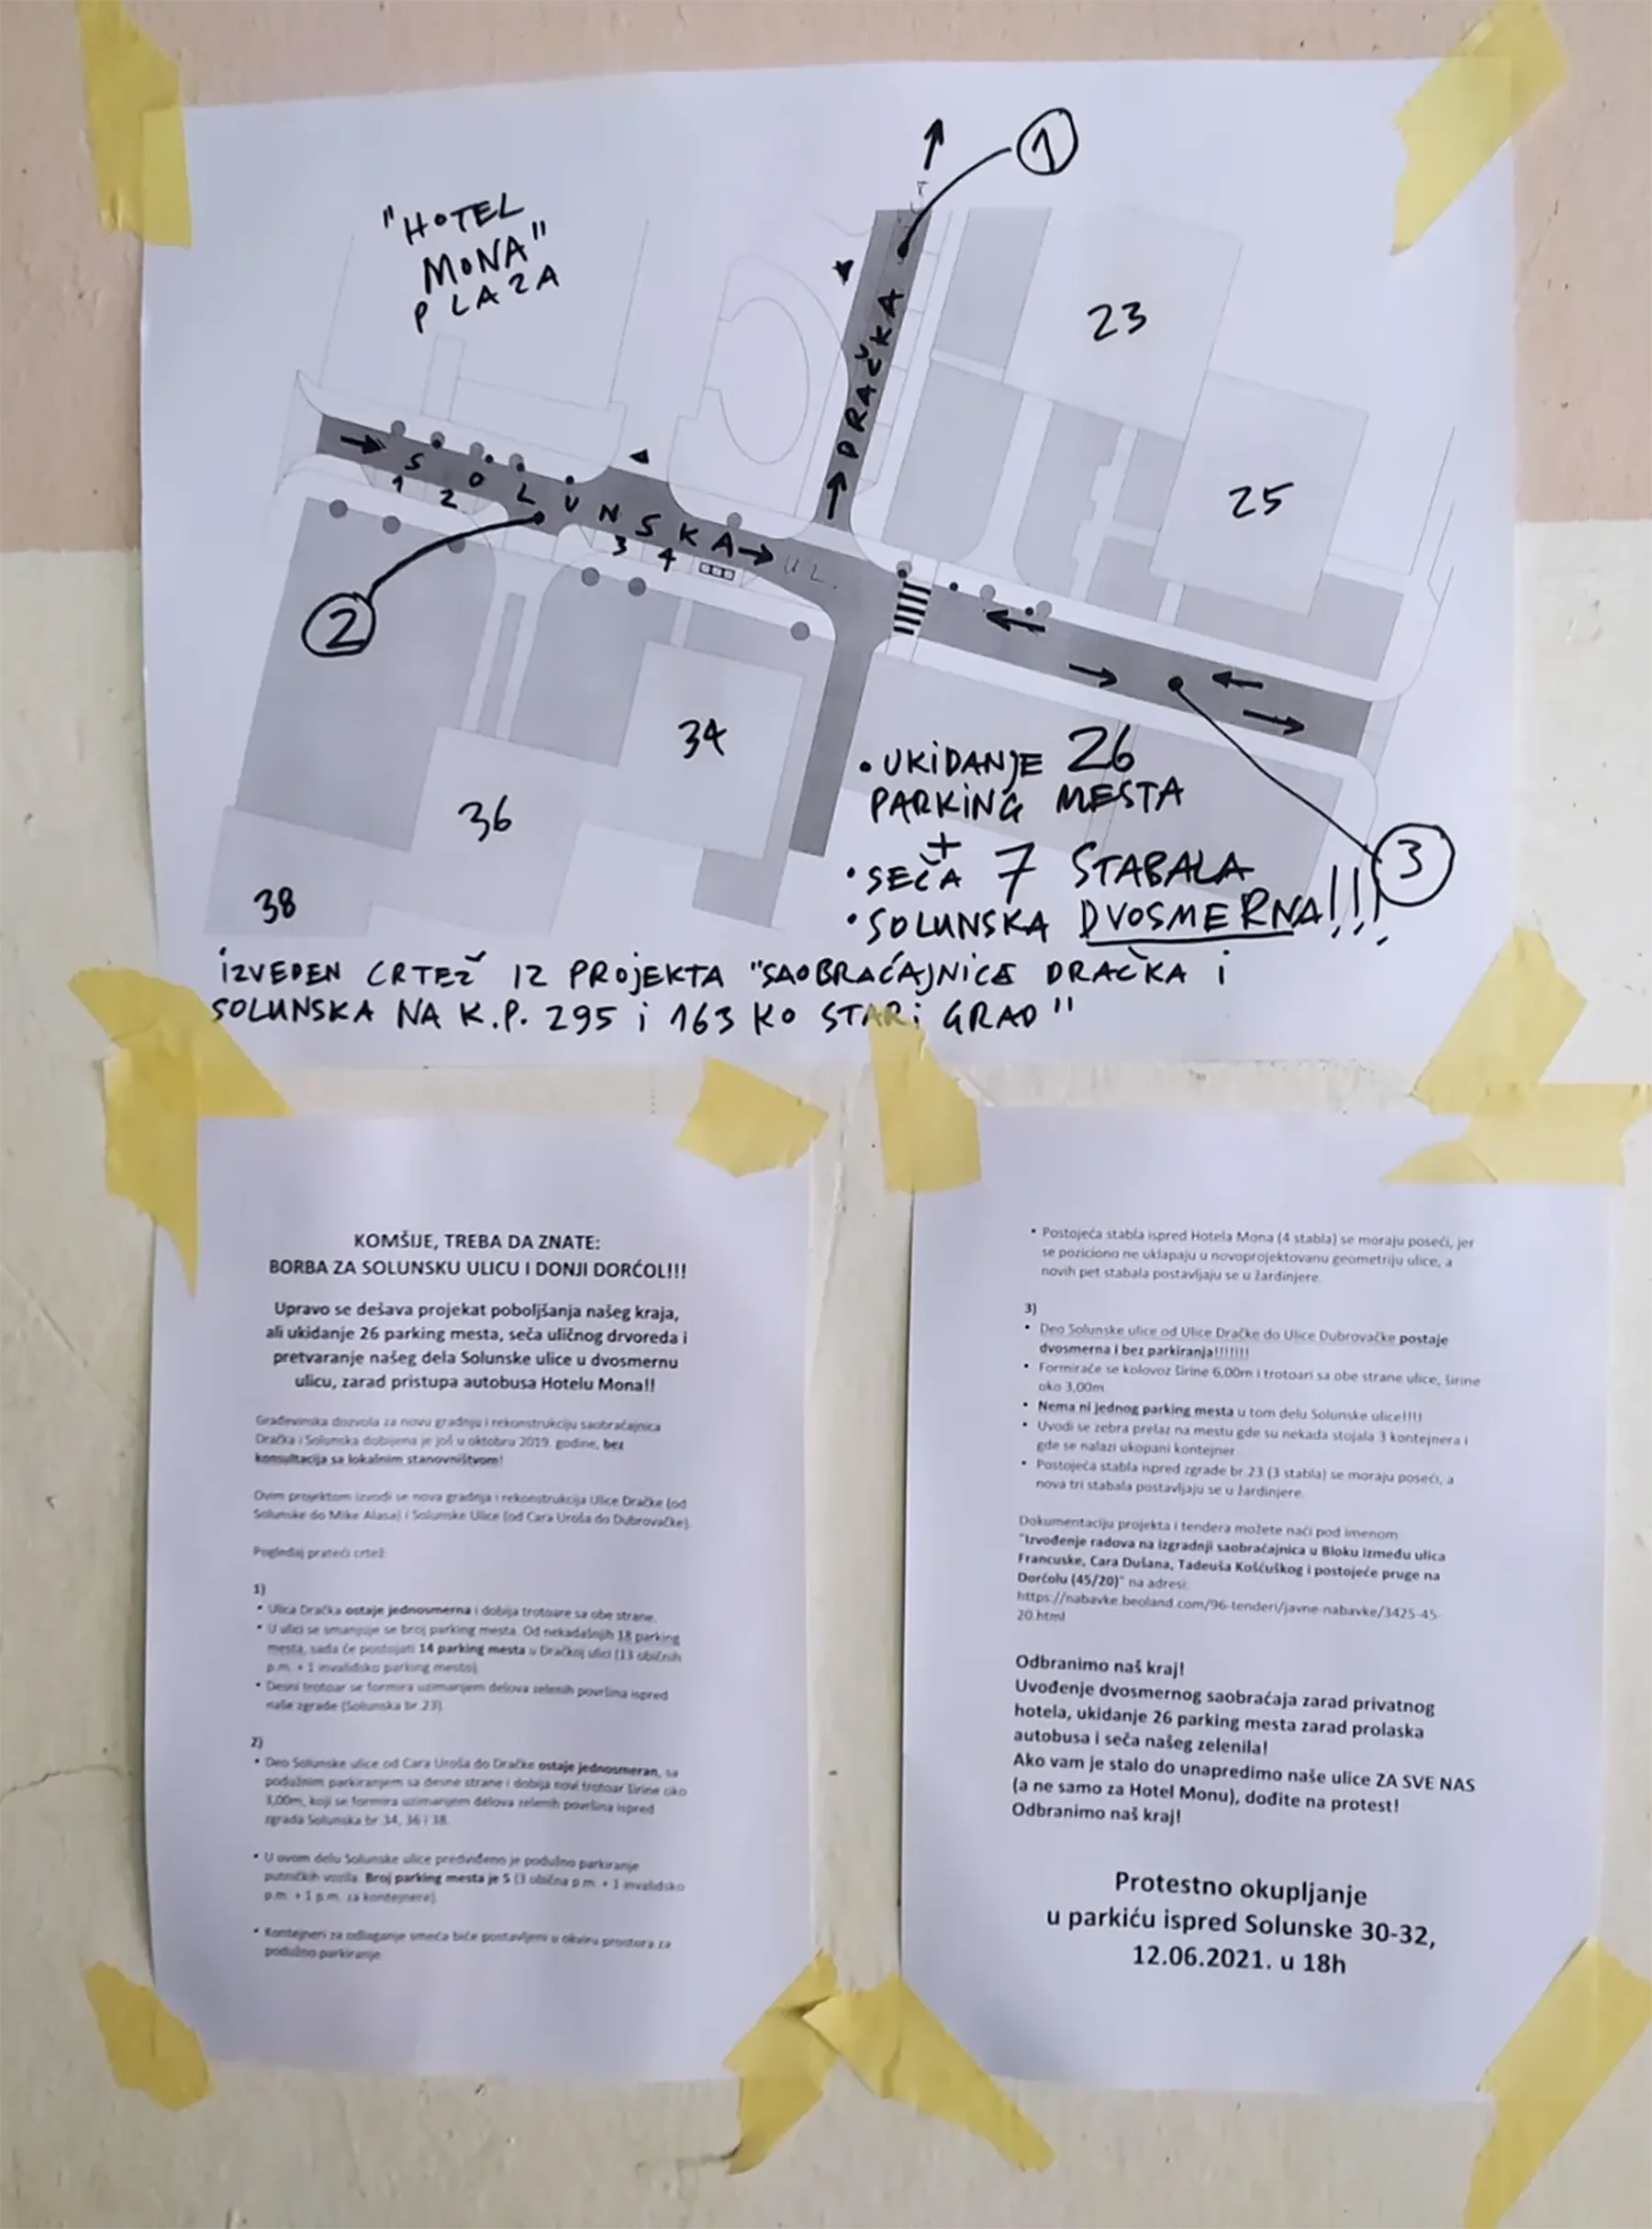 1
"HOTEL
MONA"
PLAZA
DRAČKA
23
25
SOLUNSKA UL.
1 2 3 4
2
34
36
38
• UKIDANJE 26
PARKING MESTA
+
• SEČA 7 STABALA
• SOLUNSKA DVOSMERNA!!!
3
IZVEDEN CRTEŽ IZ PROJEKTA "SAOBRAĆAJNICE DRAČKA I
SOLUNSKA NA K.P. 295 i 163 KO STARi GRAD"
KOMŠIJE, TREBA DA ZNATE:
BORBA ZA SOLUNSKU ULICU I DONJI DORĆOL!!!
Upravo se dešava projekat poboljšanja našeg kraja,
ali ukidanje 26 parking mesta, seča uličnog drvoreda i
pretvaranje našeg dela Solunske ulice u dvosmernu
ulicu, zarad pristupa autobusa Hotelu Mona!!
Građevinska dozvola za novu gradnju i rekonstrukciju saobraćajnica
Dračka i Solunska dobijena je još u oktobru 2019. godine, bez
konsultacija sa lokalnim stanovništvom!
Ovim projektom izvodi se nova gradnja i rekonstrukcija Ulice Dračke (od
Solunske do Mike Alasa) i Solunske Ulice (od Cara Uroša do Dubrovačke).
Pogledaj prateći crtež:
1)
• Ulica Dračka ostaje jednosmerna i dobija trotoare sa obe strane.
• U ulici se smanjuje se broj parking mesta. Od nekadašnjih 18 parking
mesta, sada će postojati 14 parking mesta u Dračkoj ulici (13 običnih
p.m. + 1 invalidsko parking mesto)
• Desni trotoar se formira uzimanjem delova zelenih površina ispred
naše zgrade (Solunska br 23).
2)
• Deo Solunske ulice od Cara Uroša do Dračke ostaje jednosmeran, sa
podužnim parkiranjem sa desne strane i dobija novi trotoar širine oko
3,00m, koji se formira uzimanjem delova zelenih površina ispred
zgrada Solunska br. 34, 36 i 38.
• U ovom delu Solunske ulice predviđeno je podužno parkiranje
putničkih vozila. Broj parking mesta je 5 (3 obična p.m. + 1 invalidsko
p.m. + 1 p.m. za kontejnere)
• Kontejneri za odlaganje smeća biće postavljeni u okviru prostora za
podužno parkiranje.
• Postojeća stabla ispred Hotela Mona (4 stabla) se moraju poseći, jer
se poziciono ne uklapaju u novoprojektovanu geometriju ulice, a
novih pet stabala postavljaju se u žardinjere.
3)
• Deo Solunske ulice od Ulice Dračke do Ulice Dubrovačke postaje
dvosmerna i bez parkiranja!!!!!!!
• Formiraće se kolovoz širine 6,00m i trotoari sa obe strane ulice, širine
oko 3,00m.
• Nema ni jednog parking mesta u tom delu Solunske ulice!!!!
• Uvodi se zebra prelaz na mestu gde su nekada stojala 3 kontejnera i
gde se nalazi ukopani kontejner.
• Postojeća stabla ispred zgrade br.23 (3 stabla) se moraju poseći, a
nova tri stabala postavljaju se u žardinjere.
Dokumentaciju projekta i tendera možete naći pod imenom
"Izvođenje radova na izgradnji saobraćajnica u Bloku između ulica
Francuske, Cara Dušana, Tadeuša Košćuškog i postojeće pruge na
Dorćolu (45/20)" na adresi:
https://nabavke.beoland.com/96-tenderi/javne-nabavke/3425-45-
20.html
Odbranimo naš kraj!
Uvođenje dvosmernog saobraćaja zarad privatnog
hotela, ukidanje 26 parking mesta zarad prolaska
autobusa i seča našeg zelenila!
Ako vam je stalo do unapredimo naše ulice ZA SVE NAS
(a ne samo za Hotel Monu), dođite na protest!
Odbranimo naš kraj!
Protestno okupljanje
u parkiću ispred Solunske 30-32,
12.06.2021. u 18h